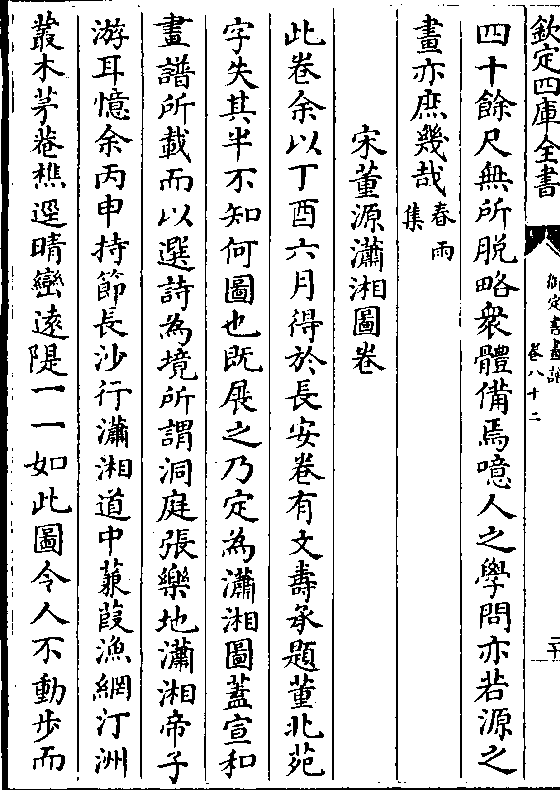 欽定四庫全書
御定書畫譜
卷八十二
二十
四十餘尺無所脱略衆體備焉噫人之學問亦若源之
畫亦庶幾哉春雨集
宋董源瀟湘圖卷
此卷余以丁酉六月得於長安卷有文壽承題董北苑
字失其半不知何圖也既展之乃定為瀟湘圖蓋宣和
畫譜所載而以選詩為境所謂洞庭張樂地瀟湘帝子
游耳憶余丙申持節長沙行瀟湘道中蒹葭漁網汀洲
叢木茅菴樵逕晴巒遠隄一一如此圖令人不動步而